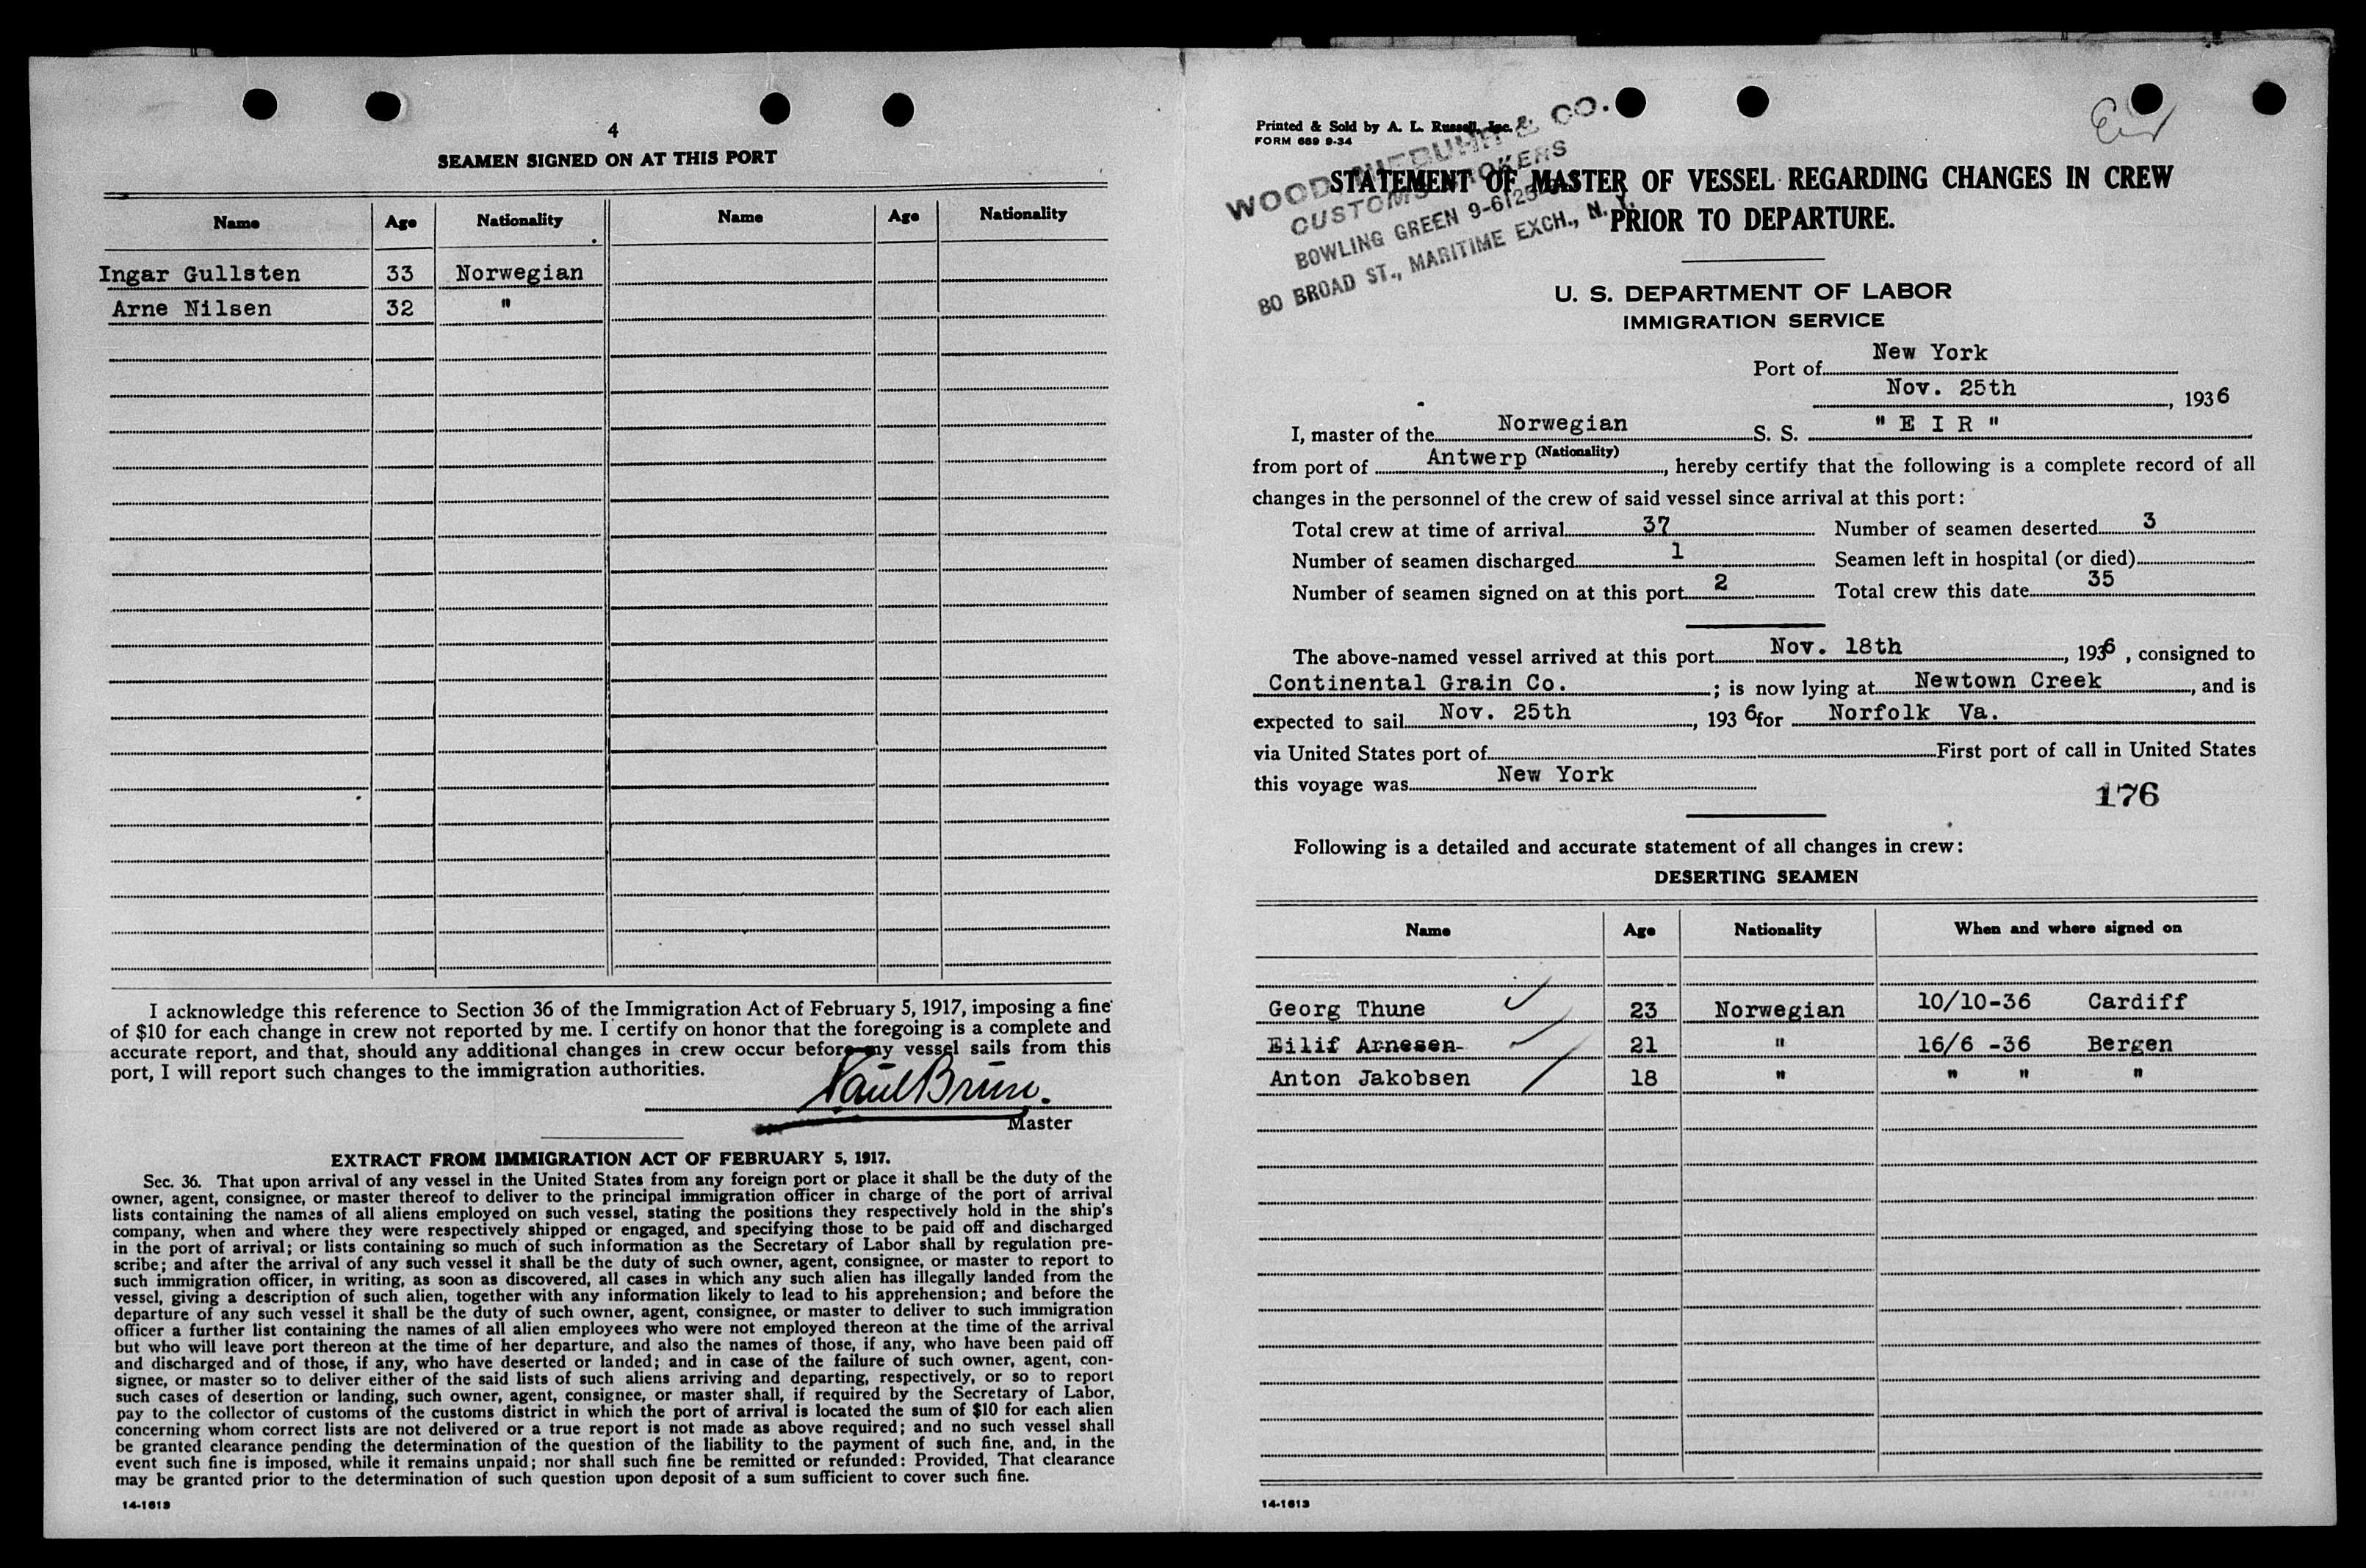 4
SEAMEN SIGNED ON AT THIS PORT
Name Age Nationality Name Age Nationality
Ingar Gullsten 33 Norwegian
Arne Nilsen 32 "
I acknowledge this reference to Section 36 of the Immigration Act of February 5, 1917, imposing a fine
of $10 for each change in crew not reported by me. I certify on honor that the foregoing is a complete and
accurate report, and that, should any additional changes in crew occur before my vessel sails from this
port, I will report such changes to the immigration authorities.
Paul Brun.
Master
EXTRACT FROM IMMIGRATION ACT OF FEBRUARY 5, 1917.
Sec. 36. That upon arrival of any vessel in the United States from any foreign port or place it shall be the duty of the
owner, agent, consignee, or master thereof to deliver to the principal immigration officer in charge of the port of arrival
lists containing the names of all aliens employed on such vessel, stating the positions they respectively hold in the ship's
company, when and where they were respectively shipped or engaged, and specifying those to be paid off and discharged
in the port of arrival; or lists containing so much of such information as the Secretary of Labor shall by regulation pre-
scribe; and after the arrival of any such vessel it shall be the duty of such owner, agent, consignee, or master to report to
such immigration officer, in writing, as soon as discovered, all cases in which any such alien has illegally landed from the
vessel, giving a description of such alien, together with any information likely to lead to his apprehension; and before the
departure of any such vessel it shall be the duty of such owner, agent, consignee, or master to deliver to such immigration
officer a further list containing the names of all alien employees who were not employed thereon at the time of the arrival
but who will leave port thereon at the time of her departure, and also the names of those, if any, who have been paid off
and discharged and of those, if any, who have deserted or landed; and in case of the failure of such owner, agent, con-
signee, or master so to deliver either of the said lists of such aliens arriving and departing, respectively, or so to report
such cases of desertion or landing, such owner, agent, consignee, or master shall, if required by the Secretary of Labor,
pay to the collector of customs of the customs district in which the port of arrival is located the sum of $10 for each alien
concerning whom correct lists are not delivered or a true report is not made as above required; and no such vessel shall
be granted clearance pending the determination of the question of the liability to the payment of such fine, and, in the
event such fine is imposed, while it remains unpaid; nor shall such fine be remitted or refunded: Provided, That clearance
may be granted prior to the determination of such question upon deposit of a sum sufficient to cover such fine.
14-1613
Printed & Sold by A. L. Russell, Inc.
FORM 689 9-34
Eir
WOOD & CO.
CUSTOMS BROKERS
BOWLING GREEN 9-6125
80 BROAD ST., MARITIME EXCH., N. Y.
STATEMENT OF MASTER OF VESSEL REGARDING CHANGES IN CREW
PRIOR TO DEPARTURE.
U. S. DEPARTMENT OF LABOR
IMMIGRATION SERVICE
Port of New York
Nov. 25th, 1936
I, master of the Norwegian S. S. " E I R "
(Nationality)
from port of Antwerp, hereby certify that the following is a complete record of all
changes in the personnel of the crew of said vessel since arrival at this port:
Total crew at time of arrival 37 Number of seamen deserted 3
Number of seamen discharged 1 Seamen left in hospital (or died)
Number of seamen signed on at this port 2 Total crew this date 35
The above-named vessel arrived at this port Nov. 18th, 1936, consigned to
Continental Grain Co. ; is now lying at Newtown Creek, and is
expected to sail Nov. 25th, 1936 for Norfolk Va.
via United States port of First port of call in United States
this voyage was New York
176
Following is a detailed and accurate statement of all changes in crew:
DESERTING SEAMEN
Name Age Nationality When and where signed on
Georg Thune 23 Norwegian 10/10-36 Cardiff
Eilif Arnesen 21 " 16/6 -36 Bergen
Anton Jakobsen 18 " " " "
14-1613